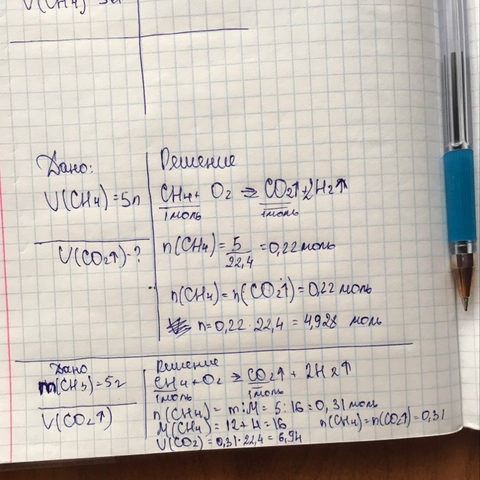 V(CH4)
Дано:
V(CH4)=5л
V(CO2↑)-?
Решение
CH4+ O2 ⇒ CO2↑+2H2↑
1моль 1моль
n(CH4)= 5/22,4 =0,22моль
n(CH4)=n(CO2↑)=0,22моль
n=0,22·22,4=4,928 моль
Дано
m(CH4)=5г
V(CO2↑)
Решение
CH4+O2 ⇒ CO2↑ + 2H2↑
1моль 1моль
n(CH4)= m:M= 5:16=0,31моль
M(CH4)=12+4=16 n(CH4)=n(CO2↑)=0,31
V(CO2)=0,31·22,4=6,94